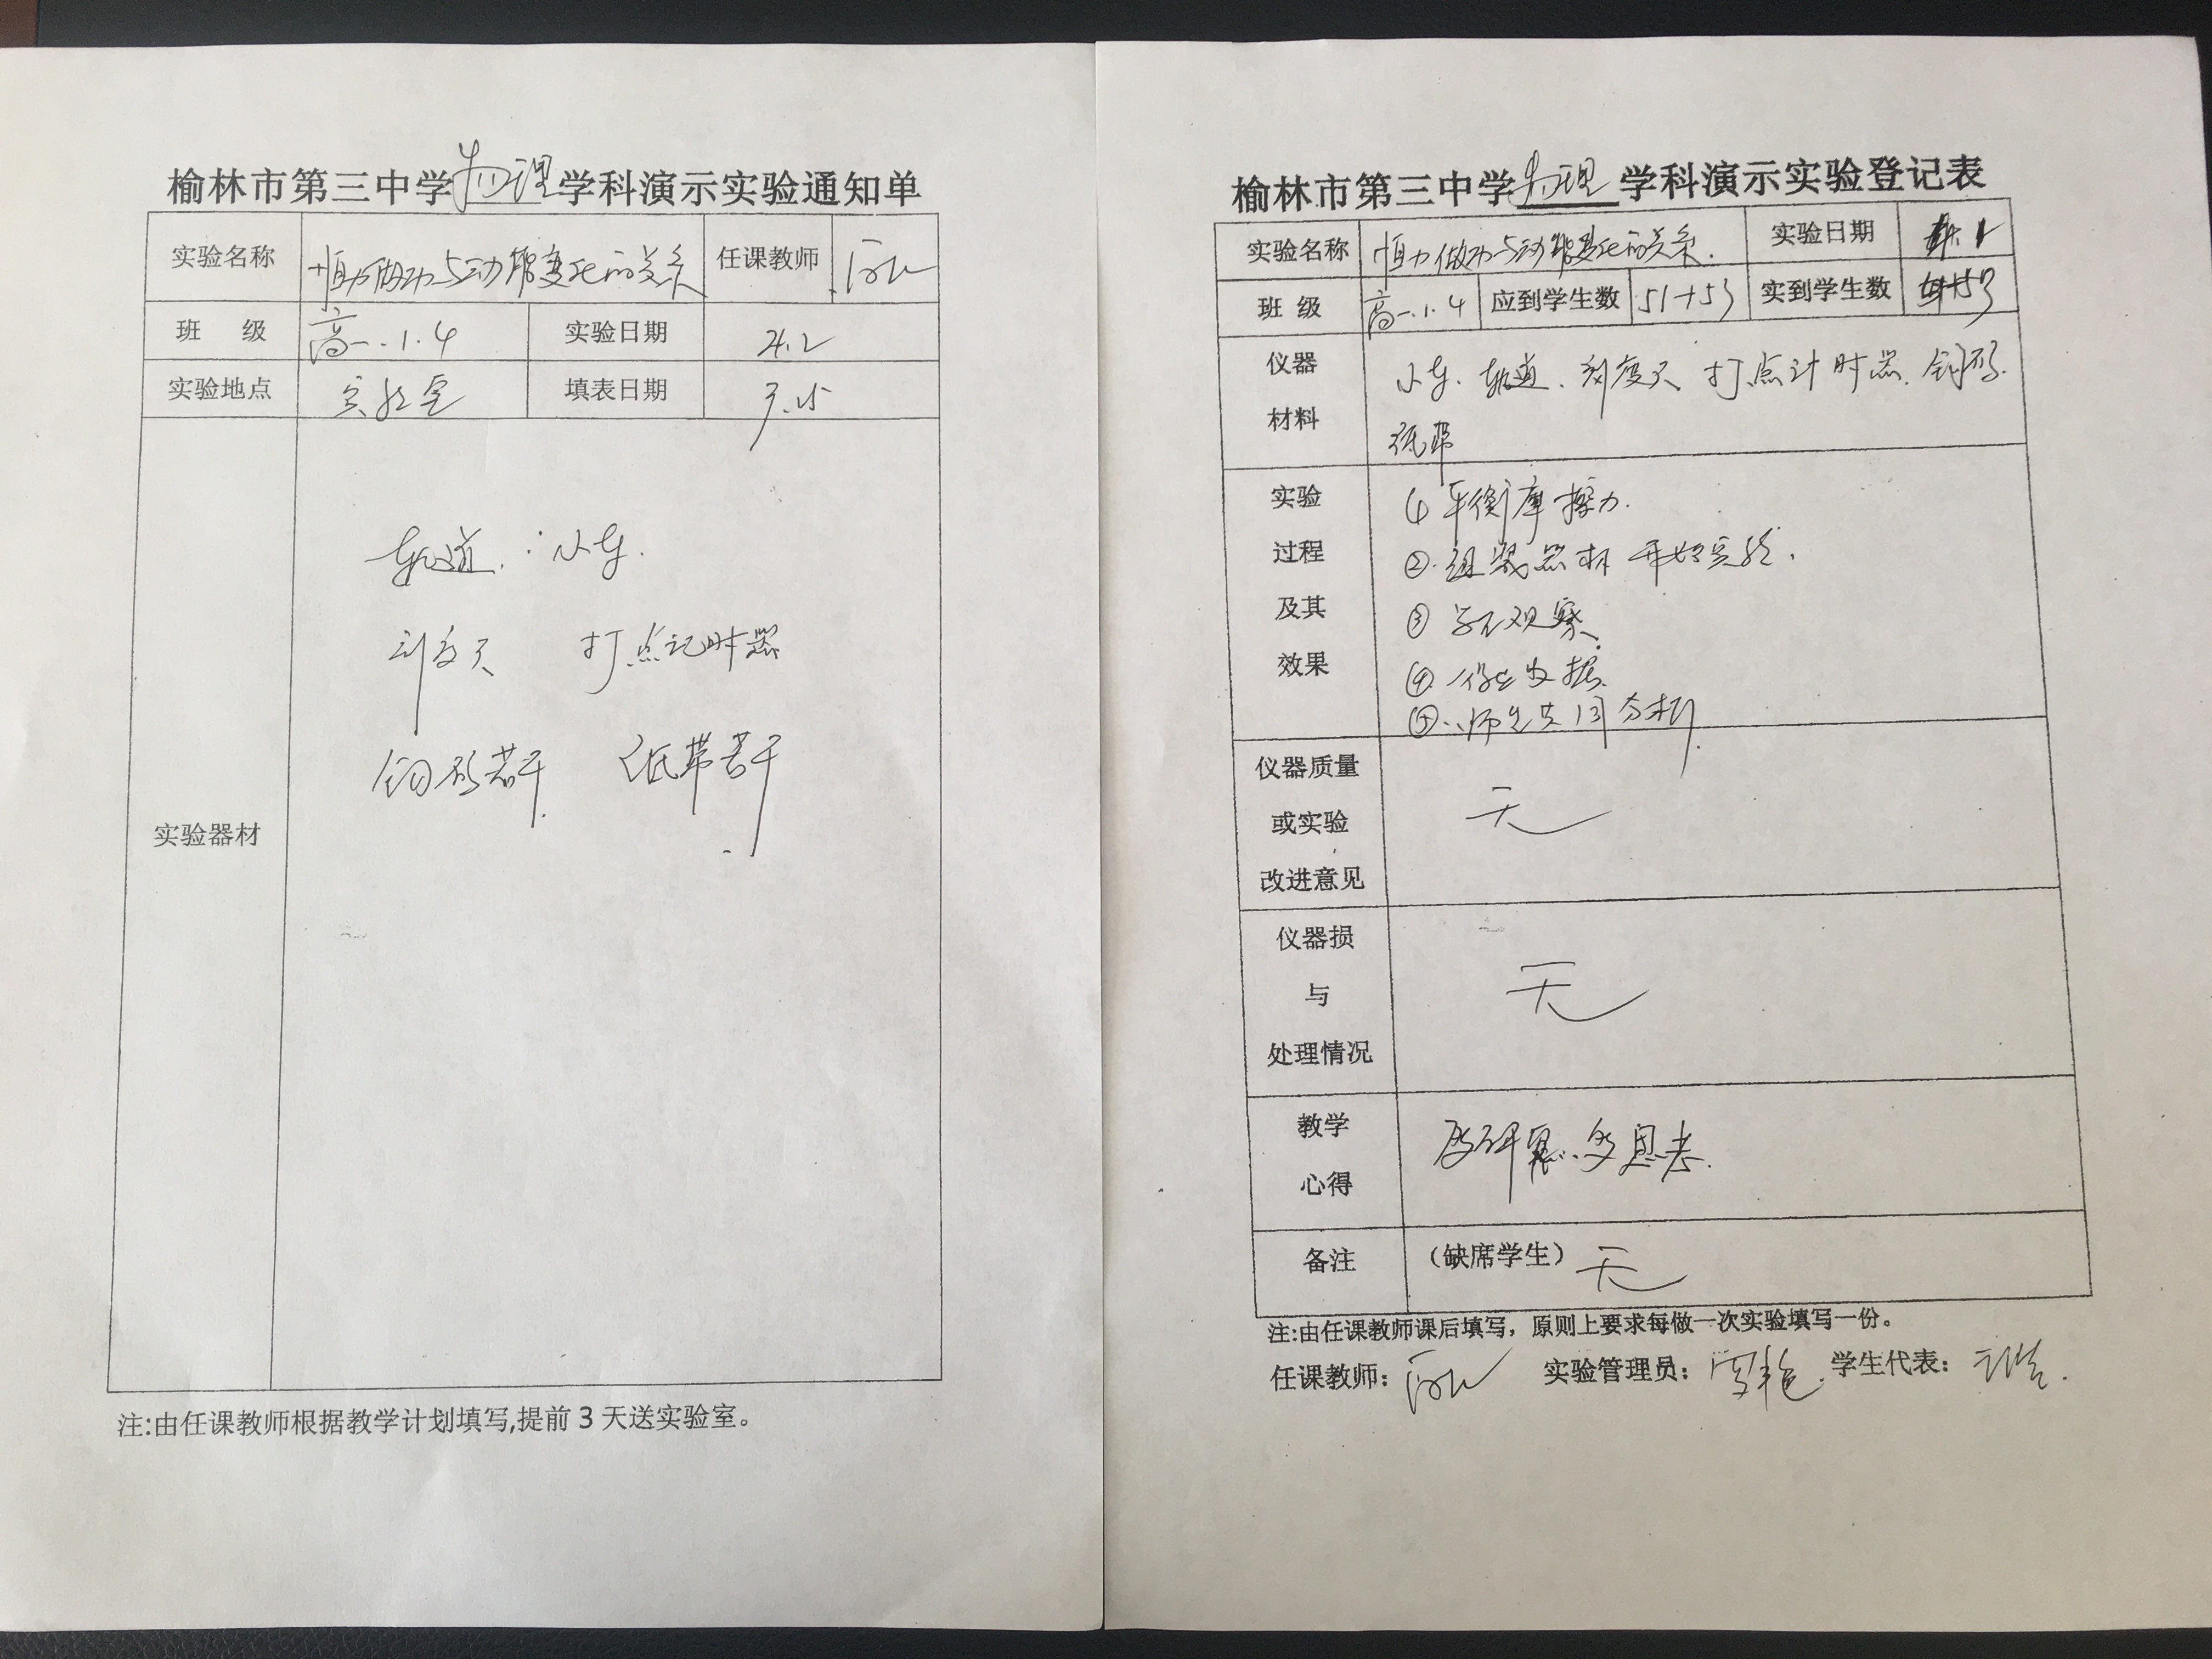 榆林市第三中学物理学科演示实验通知单
实验名称 恒力做功与动能变化的关系 任课教师
班 级 高一.1.4 实验日期 4.2
实验地点 实验室 填表日期 3.25
实验器材
轨道. 小车.
刻度尺 打点记时器
钩码若干 纸带若干
注:由任课教师根据教学计划填写,提前3天送实验室。
榆林市第三中学物理学科演示实验登记表
实验名称 恒力做功与动能变化的关系. 实验日期
班 级 高一.1.4 应到学生数 51+53 实到学生数
仪器
材料
小车. 轨道. 刻度尺 打点计时器. 钩码.
纸带
实验
过程
及其
效果
① 平衡摩擦力.
②. 组装器材 开始实验.
③ 学生观察.
④ 数据.
⑤. 师生共同分析.
仪器质量
或实验
改进意见
无
仪器损
与
处理情况
无
教学
心得
多思考.
备注 (缺席学生) 无
注:由任课教师课后填写，原则上要求每做一次实验填写一份。
任课教师: 实验管理员: 学生代表: